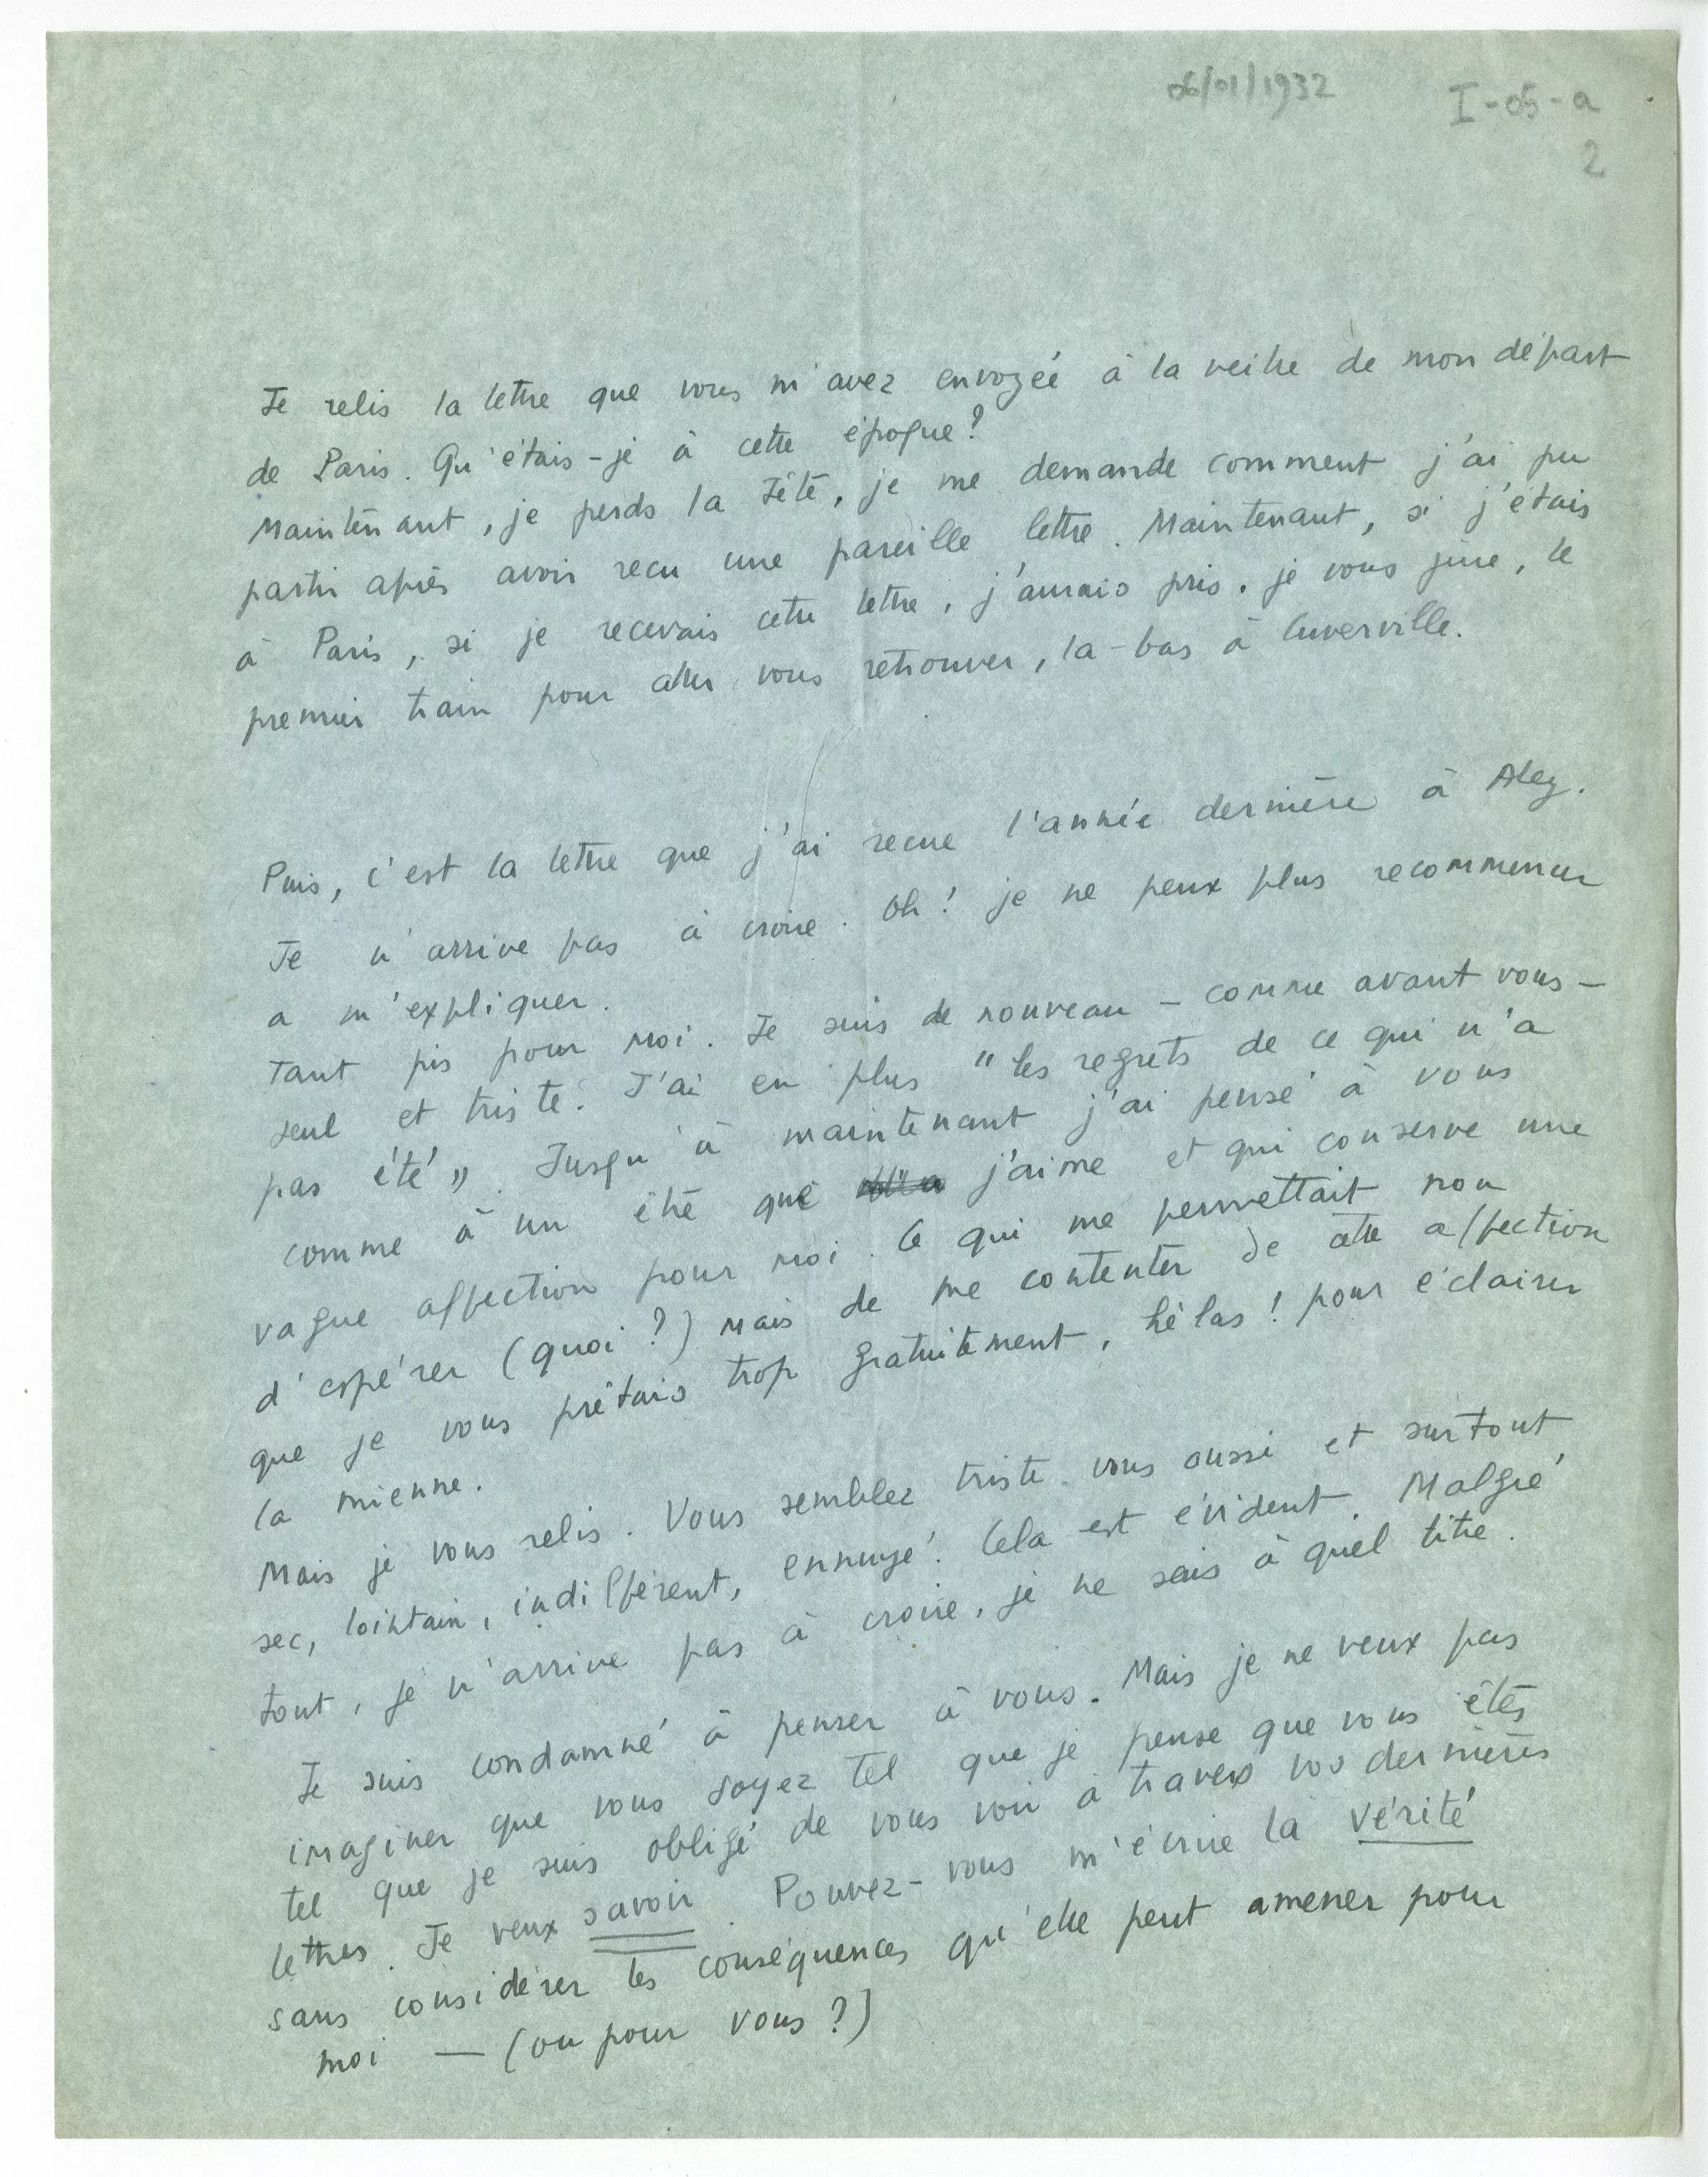 06/01/1932
I-05-a
2
Je relis la lettre que vous m'avez envoyée à la veille de mon départ
de Paris. Qu'étais-je à cette époque?
Maintenant, je perds la tête, je me demande comment j'ai pu
partir après avoir reçu une pareille lettre. Maintenant, si j'étais
à Paris, si je recevais cette lettre, j'aurais pris, je vous jure, le
premier train pour aller vous retrouver, la-bas à Cuverville.
Puis, c'est la lettre que j'ai recue l'année dernière à Aley.
Je n'arrive pas à croire. Oh! je ne peux plus recommencer
a m'expliquer.
Tant pis pour moi. Je suis de nouveau – comme avant vous –
seul et triste. J'ai en plus "les regrets de ce qui n'a
pas été". Jusqu'à maintenant j'ai pensé à vous
comme à un être que j'aime et qui conserve une
vague affection pour moi. Ce qui me permettait non
d'espérer (quoi?) mais de me contenter de cette affection
que je vous prêtais trop gratuitement, hélas! pour éclairer
la mienne.
Mais je vous relis. Vous semblez triste vous aussi et surtout
sec, lointain, indifférent, ennuyé. Cela est évident. Malgré
tout, je n'arrive pas à croire, je ne sais à quel titre.
Je suis condamné à penser à vous. Mais je ne veux pas
imaginer que vous soyez tel que je pense que vous êtes
tel que je suis obligé de vous voir à travers vos dernières
lettres. Je veux savoir. Pouvez-vous m'écrire la vérité
sans considérer les conséquences qu'elle peut amener pour
moi — (ou pour vous?)